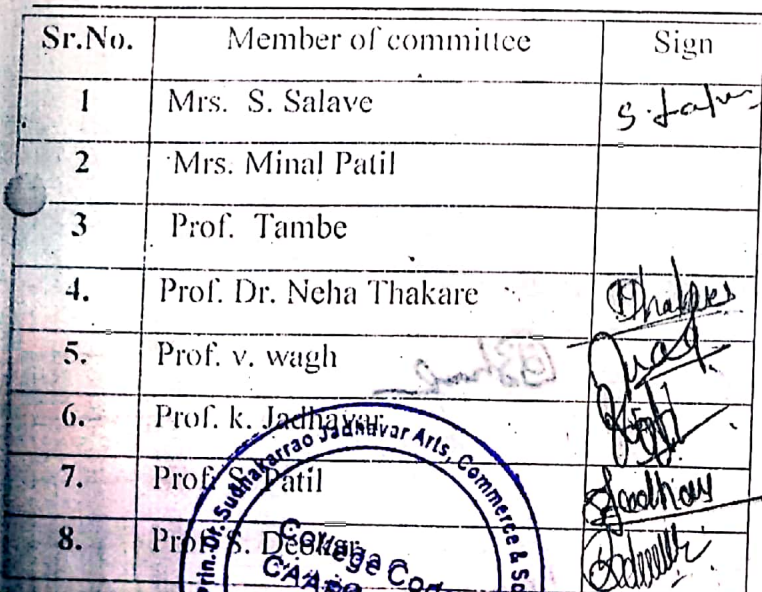 Sr.No. Member of committee Sign
1 Mrs. S. Salave
2 Mrs. Minal Patil
3 Prof. Tambe
4. Prof. Dr. Neha Thakare
5. Prof. v. wagh
6. Prof. k. Jadhavar
7. Prof. S. Patil
8. Prof. S. Deokar
Prin. Dr. Sudhakarrao Jadhavar Arts, Commerce &
College